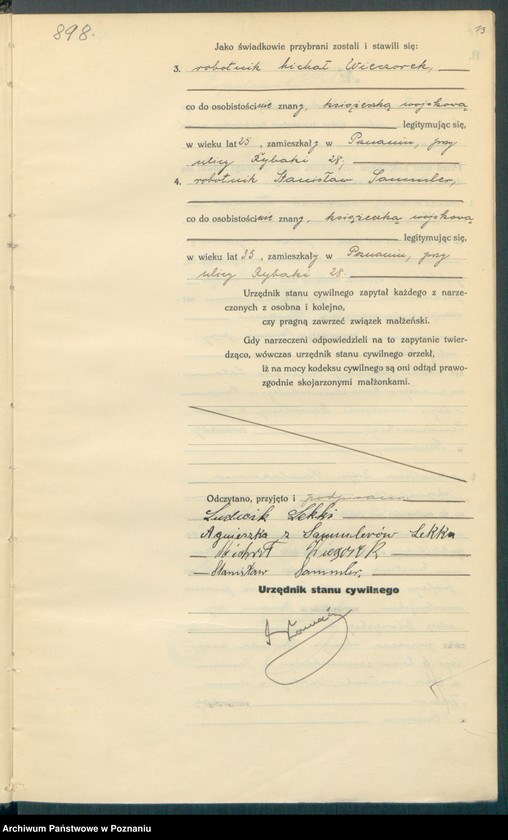 898.
73
Jako świadkowie przybrani zostali i stawili się:
3. robotnik Michał Wieczorek,
co do osobistości nie znany, książeczką wojskową
legitymując się,
w wieku lat 25, zamieszkały w Poznaniu, przy
ulicy Rybaki 28,
4. robotnik Stanisław Sammler,
co do osobistości nie znany, książeczką wojskową
legitymując się,
w wieku lat 35, zamieszkały w Poznaniu, przy
ulicy Rybaki 28.
Urzędnik stanu cywilnego zapytał każdego z narze-
czonych z osobna i kolejno,
czy pragną zawrzeć związek małżeński.
Gdy narzeczeni odpowiedzieli na to zapytanie twier-
dząco, wówczas urzędnik stanu cywilnego orzekł,
iż na mocy kodeksu cywilnego są oni odtąd prawo-
zgodnie skojarzonymi małżonkami.
Odczytano, przyjęto i podpisano
Ludwik Lekki
Agnieszka z Sammlerów Lekka
Michał Wieczorek
Stanisław Sammler,
Urzędnik stanu cywilnego
Archiwum Państwowe w Poznaniu